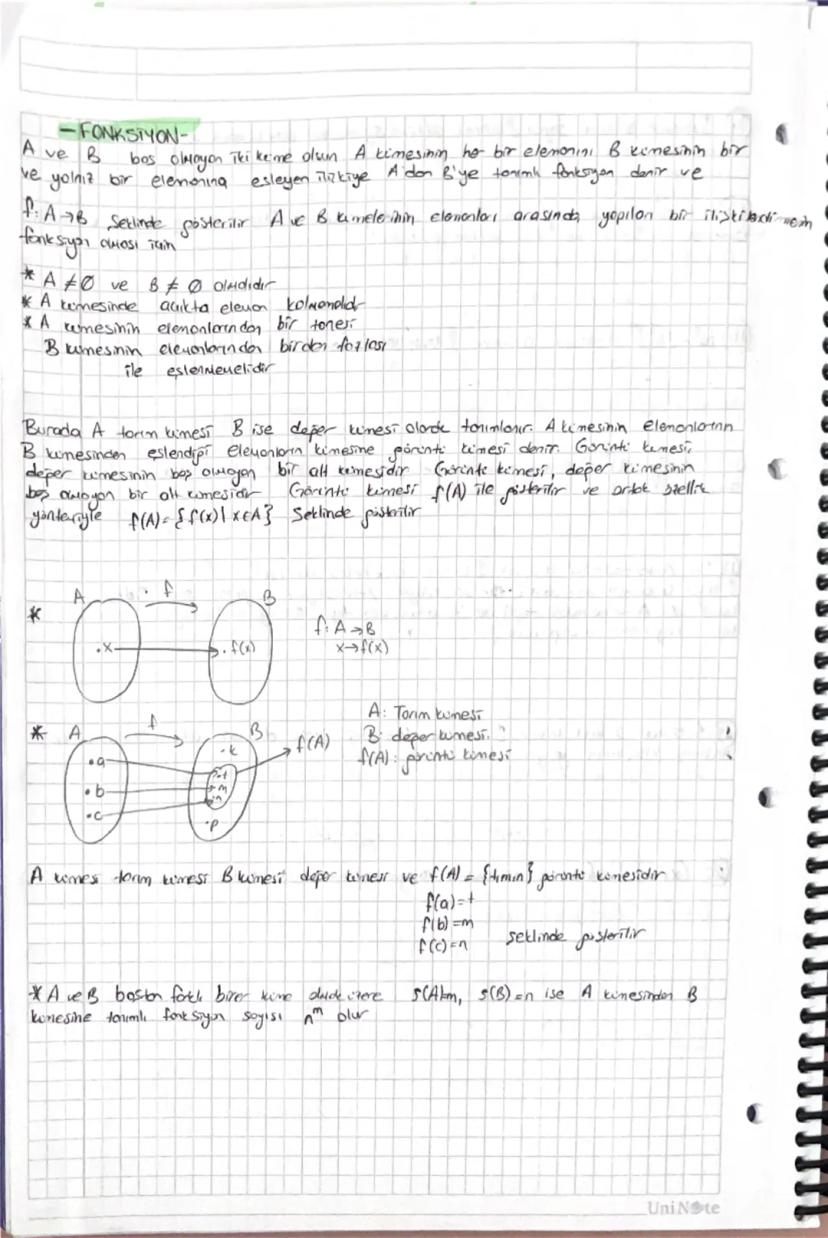 -FONKSİYON-
A ve B boş olmayan iki küme olsun A kümesinin her bir elemanını B kümesinin bir
ve yalnız bir elemanına eşleyen ilişkiye A'dan B'ye tanımlı fonksiyon denir ve
f: A→B şeklinde gösterilir A ve B kümelerinin elemanları arasında yapılan bir ilişkilendirmenin
fonksiyon olması için
* A ≠ Ø ve B ≠ Ø olmalıdır
* A kümesinde açıkta eleman kalmamalıdır
* A kümesinin elemanlarından bir tanesi
B kümesinin elemanlarından birden fazlası
ile eşlenmemelidir
Burada A tanım kümesi B ise değer kümesi olarak tanımlanır. A kümesinin elemanlarının
B kümesinden eşlendiği elemanların kümesine görüntü kümesi denir. Görüntü kümesi,
değer kümesinin boş olmayan bir alt kümesidir Görüntü kümesi, değer kümesinin
boş olmayan bir alt kümesidir Görüntü kümesi f(A) ile gösterilir ve ortak özellik
yöntemiyle f(A) = {f(x) | x∈A} Şeklinde gösterilir
* A f B
.x .f(x)
f: A→B
x→f(x)
* A f B
.a .b .c
.k .t .m .n .p
f(A)
A: Tanım kümesi
B: değer kümesi
f(A): görüntü kümesi
A kümesi tanım kümesi B kümesi değer kümesi ve f(A) = {t,m,n} görüntü kümesidir
f(a)=t
f(b)=m
f(c)=n şeklinde gösterilir
* A ve B boştan farklı birer küme olmak üzere s(A)=m, s(B)=n ise A kümesinden B
kümesine tanımlı fonksiyon sayısı n^m olur
UniNote